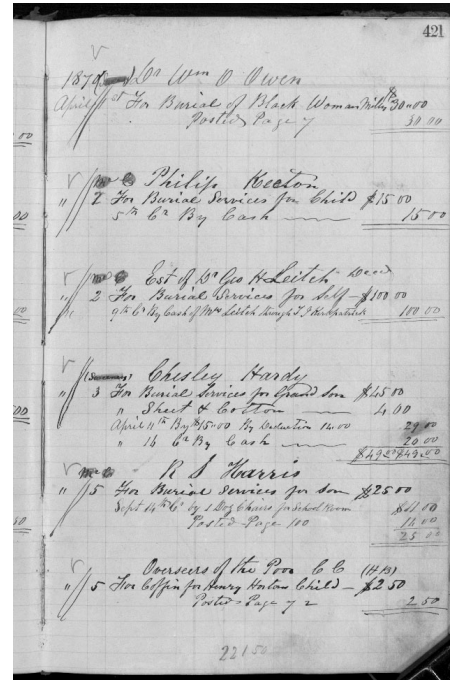 421
1879 Dr Wm O Owen
April 1st For Burial of Black Woman Milly $30.00
Posted Page 7 30.00
Philip Keeton
" 2 For Burial Services for Child $15 00
5th Cr By Cash 15 00
Est of Dr Geo H Leitch Decd
" 2 For Burial Services for Self $100 00
9th Cr By Cash of Mrs Leitch through T J Kirkpatrick 100 00
Chesley Hardy
" 3 For Burial Services for Grand Son $45 00
" Sheet & Cotton 4 00
April 11th By $15.00 By Deduction 14.00 29 00
" 14 Cr By Cash 20 00
$49 00 $49.00
R S Harris
" 5 For Burial Services for Son $25 00
Sept 14th Cr by 1 Doz Chairs for School Room $11 00
Posted Page 100 14 00
25 00
Overseers of the Poor C C (H B)
" 5 For Coffin for Henry Hortons Child $2 50
Posted Page 72 2 50
221 50